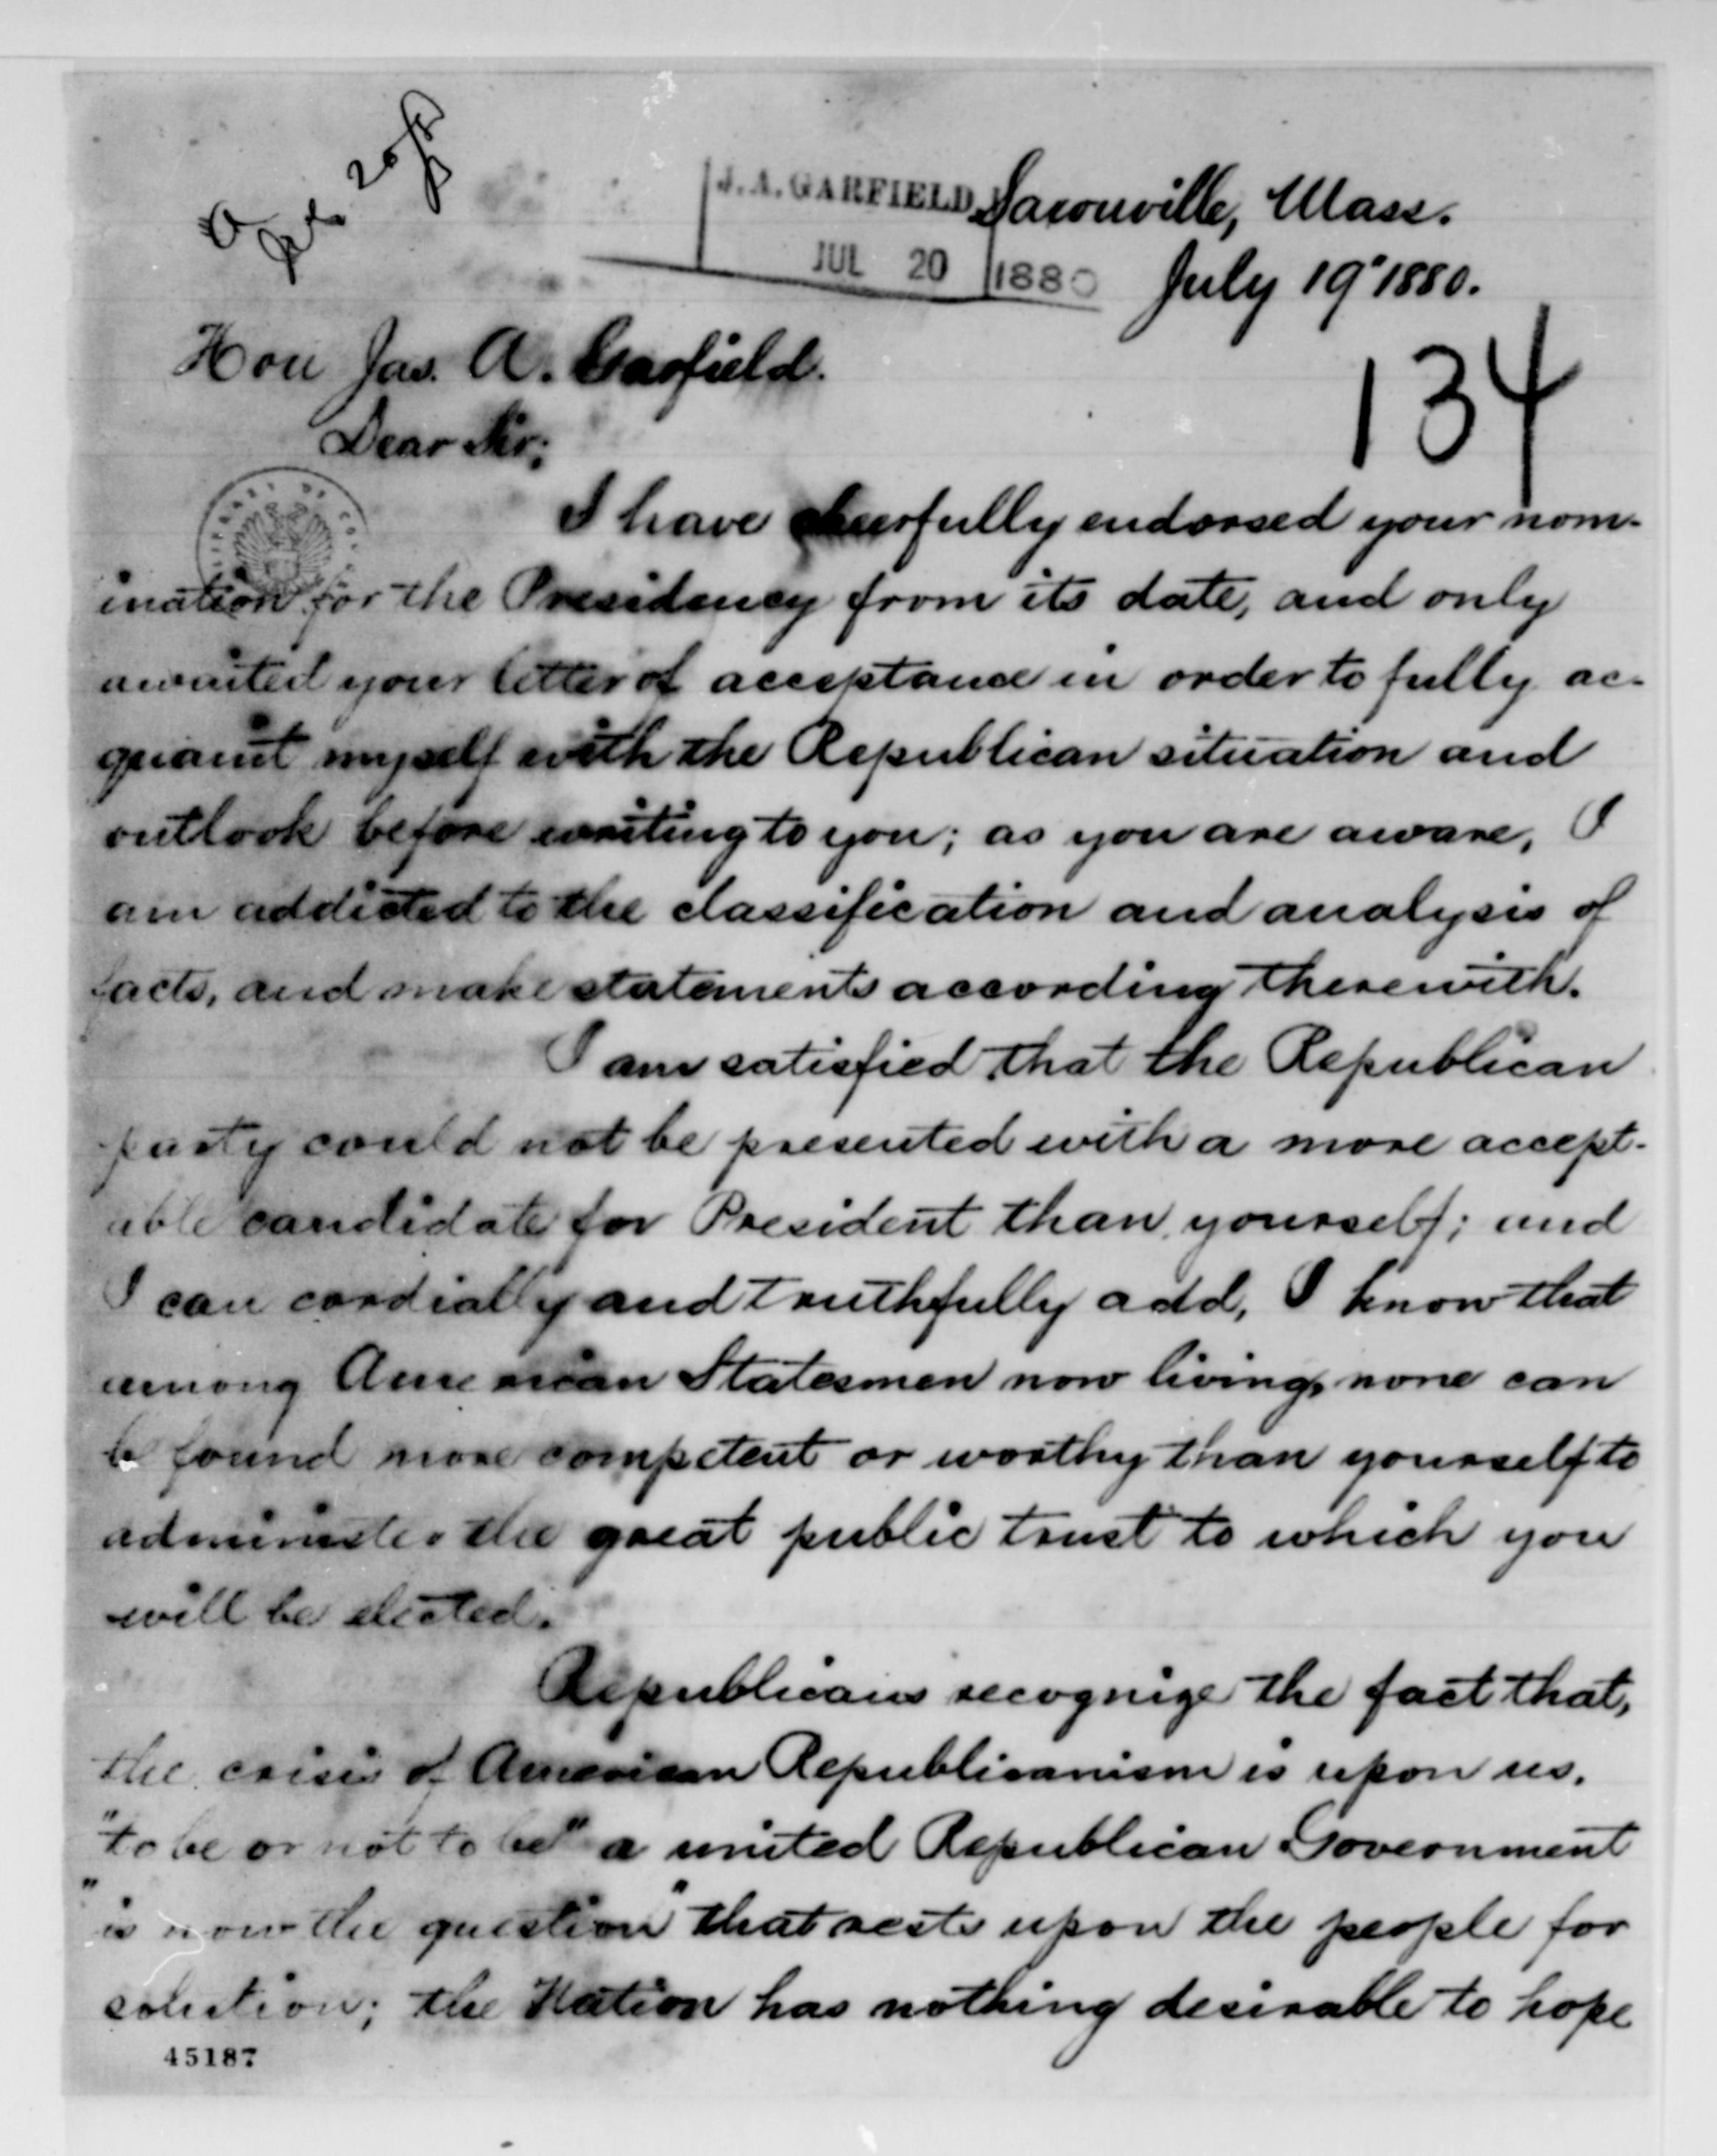 J. A. GARFIELD
JUL 20 1880
Saxonville, Mass.
July 19" 1880.
134
Hon Jas. A. Garfield.
Dear Sir;
I have cheerfully endorsed your nom-
ination for the Presidency from its date, and only
awaited your letter of acceptance in order to fully ac-
quaint myself with the Republican situation and
outlook before writing to you; as you are aware, I
am addicted to the classification and analysis of
facts, and make statements according therewith.
I am satisfied that the Republican
party could not be presented with a more accept-
able candidate for President than yourself; and
I can cordially and truthfully add, I know that
among American Statesmen now living, none can
be found more competent or worthy than yourself to
administer the great public trust to which you
will be elected.
Republicans recognize the fact that,
the crisis of American Republicanism is upon us.
"to be or not to be" a united Republican Government
"is now the question" that rests upon the people for
solution; the Nation has nothing desirable to hope
45187